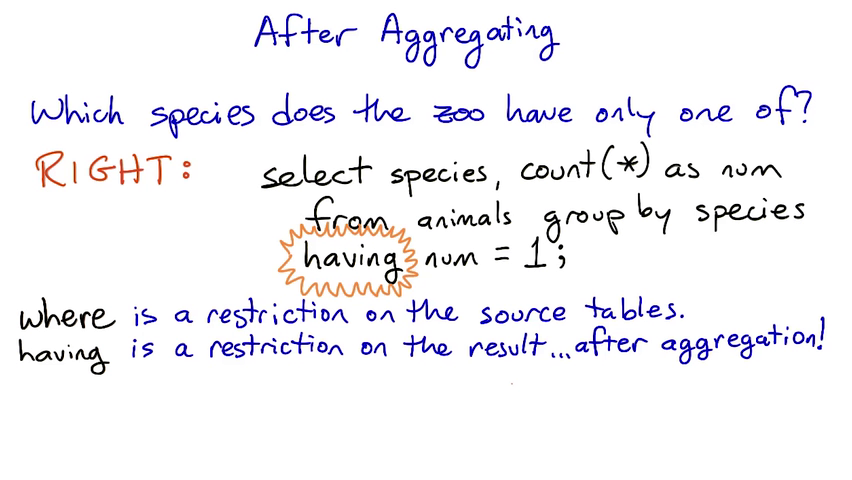 After Aggregating
Which species does the zoo have only one of?
RIGHT: select species, count(*) as num
from animals group by species
having num = 1;
where is a restriction on the source tables.
having is a restriction on the result...after aggregation!